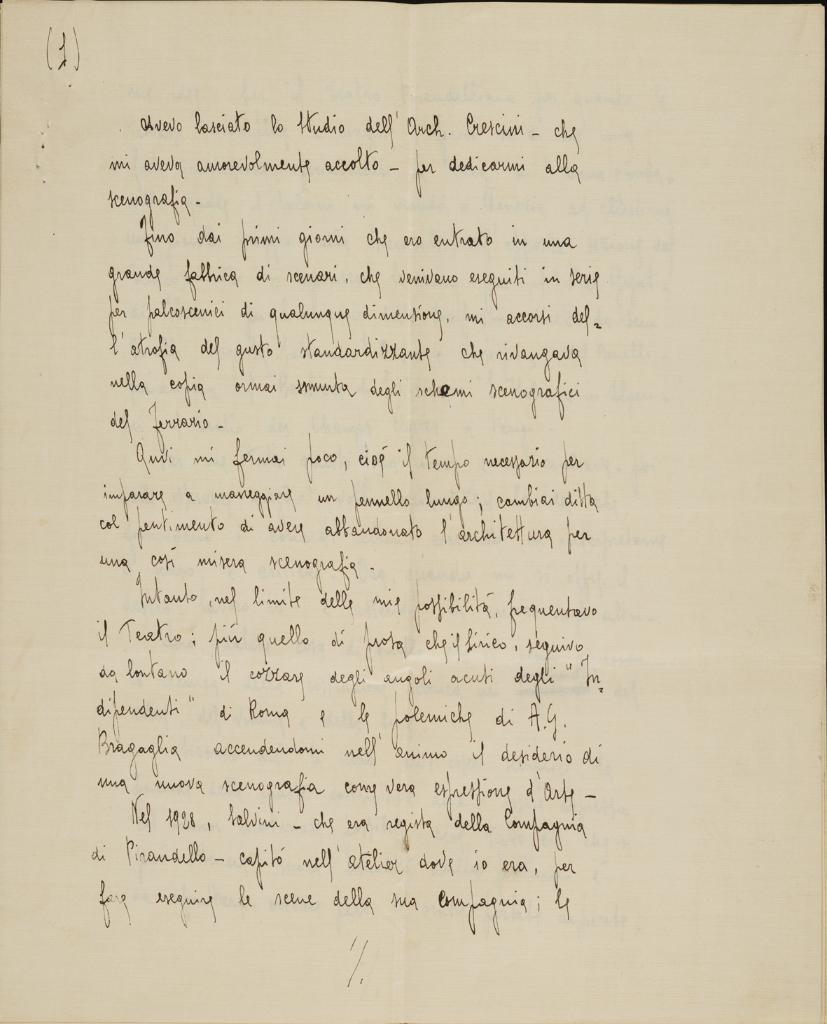 (1)
Avevo lasciato lo Studio dell'Arch. Crescini - che
mi aveva amorevolmente accolto - per dedicarmi alla
scenografia -
Fino dai primi giorni che ero entrato in una
grande fabbrica di scenari, che venivano eseguiti in serie
per palcoscenici di qualunque dimensione, mi accorsi del=
l'atrofia del gusto standardizzante che rivangava
nella copia ormai smunta degli schemi scenografici
del Ferrario -
Quivi mi fermai poco, cioè il tempo necessario per
imparare a maneggiare un pennello lungo; cambiai ditta
col pentimento di avere abbandonato l'architettura per
una così misera scenografia -
Intanto, nel limite delle mie possibilità, frequentavo
il Teatro; più quello di prosa che il lirico, seguivo
da lontano il cozzare degli angoli acuti degli "In=
dipendenti" di Roma e le polemiche di A.G.
Bragaglia accendendomi nell'animo il desiderio di
una nuova scenografia come vera espressione d'Arte -
Nel 1928, Salvini - che era regista della Compagnia
di Pirandello - capitó nell'atelier dove io ero, per
fare eseguire le scene della sua Compagnia; le
./.